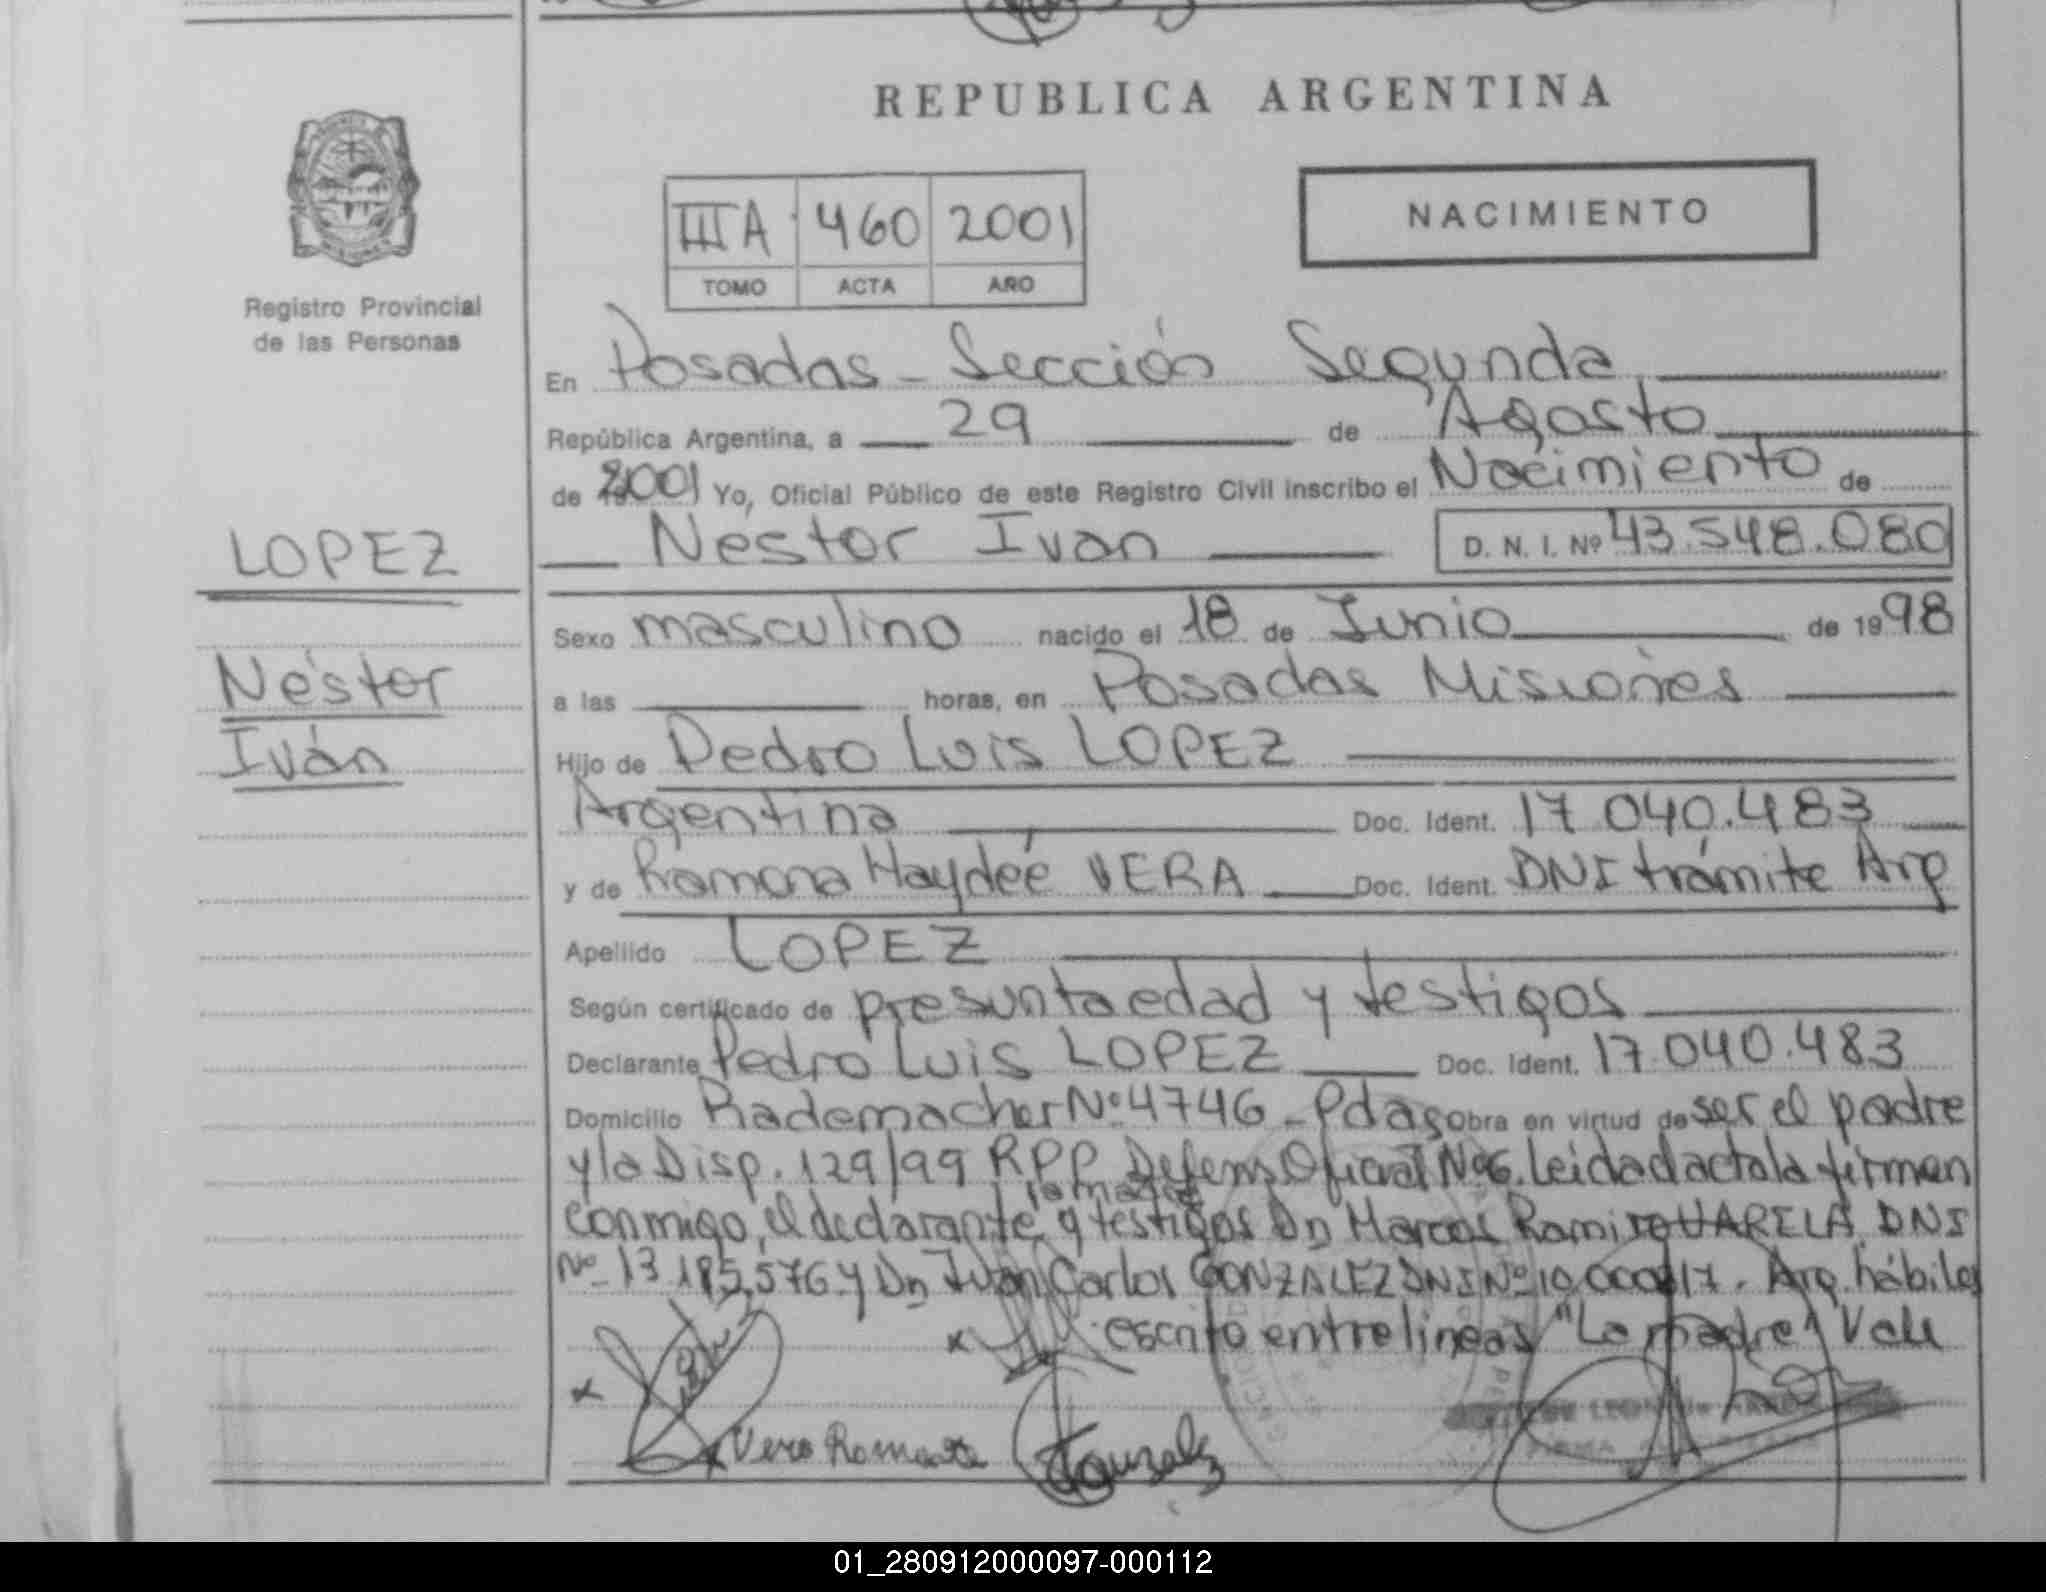 REPUBLICA ARGENTINA
NACIMIENTO
IIIA 460 2001
TOMO ACTA AÑO
Registro Provincial
de las Personas
En Posadas - Sección Segunda
República Argentina, a 29 de Agosto
de 2001 Yo, Oficial Público de este Registro Civil inscribo el Nacimiento de
Néstor Iván D. N. I. Nº 43.548.080
LOPEZ
Néstor
Iván
Sexo masculino nacido el 18 de Junio de 1998
a las horas, en Posadas Misiones
Hijo de Pedro Luis LOPEZ
Argentina Doc. Ident. 17.040.483
y de Ramona Haydeé VERA Doc. Ident. DNI trámite Arg
Apellido LOPEZ
Según certificado de presunta edad y testigos
Declarante Pedro Luis LOPEZ Doc. Ident. 17.040.483
Domicilio Rademacher Nº 4746 - Pdas Obra en virtud de ser el padre
y la Disp. 129/99 RPP Defens Oficial Nº 6. Leida el acta la firman
la madre
conmigo, el declarante, y testigos Dn Marcos Ramiro VARELA DNI
Nº 13.185.576 y Dn Juan Carlos GONZALEZ DNI Nº 10.000. Arg. hábiles
escrito entrelineas "La madre" Vale
Vera Ramona
Gonzalez
01_280912000097-000112